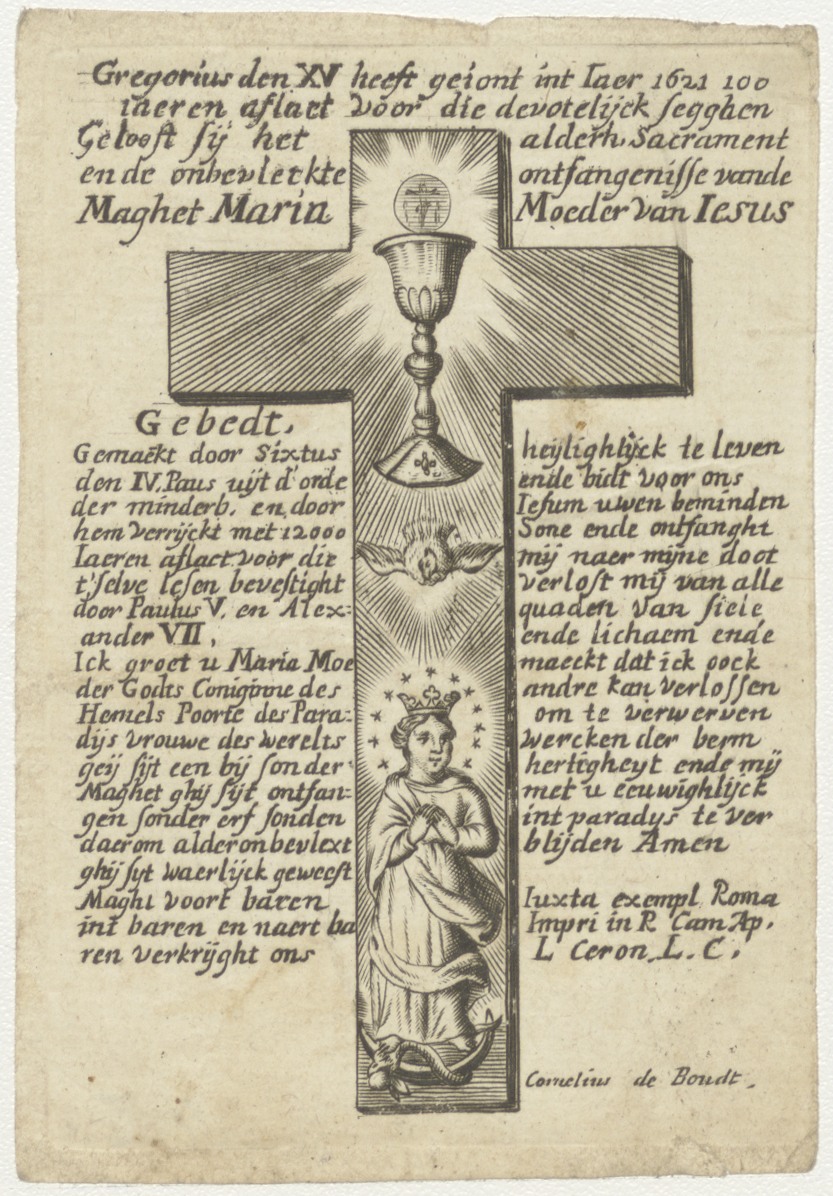 Gregorius den XV heeft geiont int Iaer 1621 100
iaeren aflaet voor die devotelijck segghen
Gelooft sij het alderh. Sacrament
ende onbevleckte ontfangenisse vande
Maghet Maria Moeder van Iesus
Gebedt,
Gemaekt door Sixtus
den IV. Paus uijt d'orde
der minderb. en door
hem verrijckt met 12000
Iaeren aflaet voor die
t'selve lesen bevestight
door Paulus V. en Alex-
ander VII,
Ick groet u Maria Moe
der Godts Conighinne des
Hemels Poorte des Para-
dijs vrouwe des werelts
geij sijt een bij sonder
Maghet ghij sijt ontfan-
gen sonder erf sonden
daerom alderonbevlext
ghij syt waerlijck geweest
Maght voort baren
int baren en naert ba
ren verkrijght ons
heylighlijck te leven
ende bidt voor ons
Iesum uwen beminden
Sone ende ontfanght
mij naer mijne doot
verlost mij van alle
quaden van siele
ende lichaem ende
maeckt dat ick oock
andre kan verlossen
om te verwerven
wercken der berm
hertigheyt ende mij
met u eeuwighlijck
int paradys te ver
blijden Amen
Iuxta exempl Roma
Impri in R Cam Ap.
L Ceron. L. C.
Cornelius de Boudt.